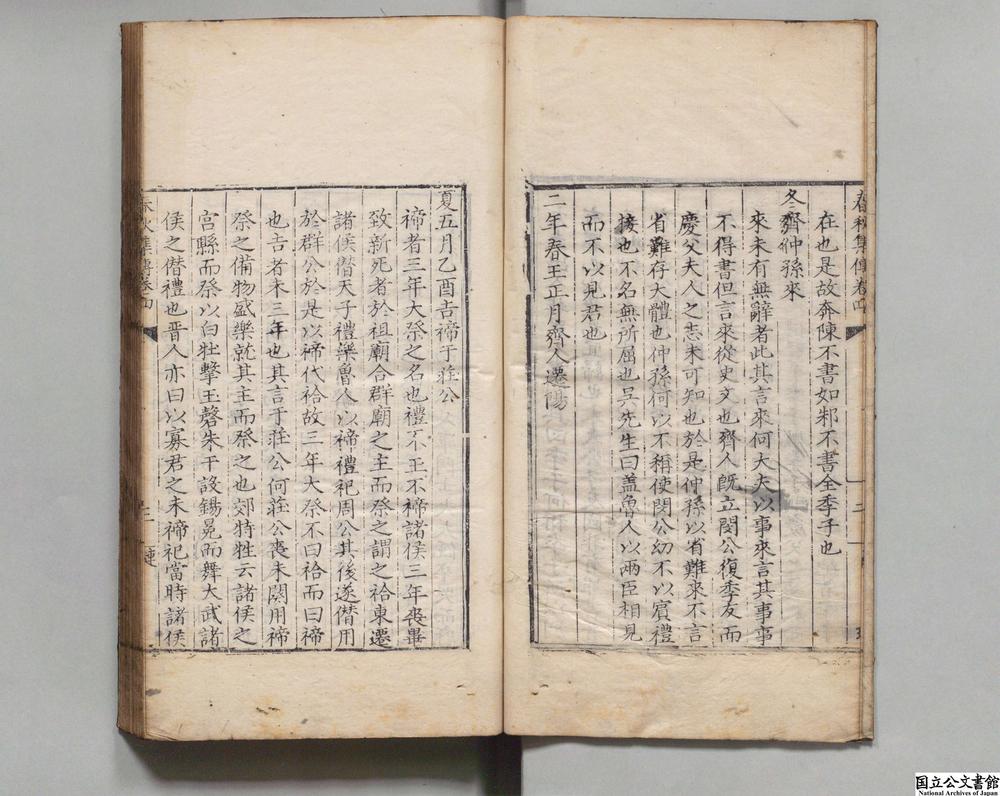 春秋集傳卷四
二
在也是故奔陳不書如邾不書全季子也
冬齊仲孫來
來未有無辭者此其言來何大夫以事來言其事事
不得書但言來從史文也齊人既立閔公復季友而
慶父夫人之志未可知也於是仲孫以省難來不言
省難存大體也仲孫何以不稱使閔公幼不以賓禮
接也不名無所屈也吳先生曰盖魯人以兩臣相見
而不以見君也
二年春王正月齊人遷陽
夏五月乙酉吉禘于莊公
禘者三年大祭之名也禮不王不禘諸侯三年喪畢
致新死者於祖廟合群廟之主而祭之謂之祫東遷
諸侯僣天子禮樂魯人以禘禮祀周公其後遂僣用
於群公於是以禘代祫故三年大祭不曰祫而曰禘
也吉者未三年也其言于莊公何莊公喪未闋用禘
祭之備物盛樂就其主而祭之也郊特牲云諸侯之
宮縣而祭以白牡擊玉磬朱干設錫冕而舞大武諸
侯之僣禮也晋人亦曰以寡君之未禘祀當時諸侯
春秋集傳卷四
國立公文書館
National Archives of Japan